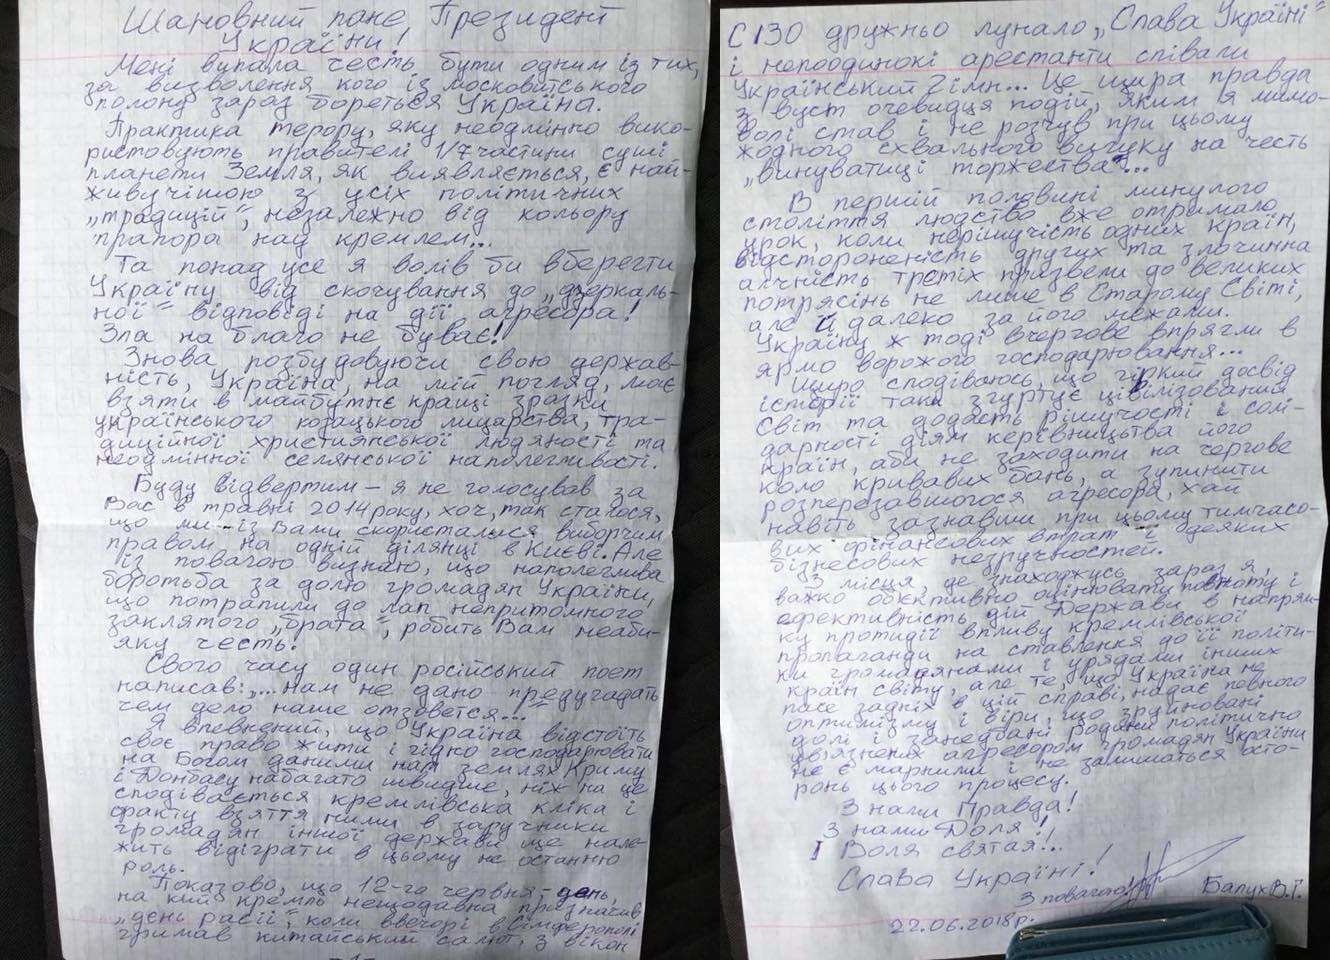 Шановний пане Президент
України!
Мені випала честь бути одним із тих,
за визволення кого із московитського
полону зараз бореться Україна.
Практика терору, яку неодмінно вико-
ристовують правителі 1/7 частини суші
планети Земля, як виявляється, є най-
живучішою з усіх політичних
„традицій", незалежно від кольору
прапора над кремлем...
Та понад усе я волів би вберегти
Україну від скочування до „дзеркаль-
ної" відповіді на дії агресора!
Зла на благо не буває!
Знову розбудовуючи свою держав-
ність, Україна, на мій погляд, має
взяти в майбутнє кращі зразки
українського козацького лицарства, тра-
диційної християнської людяності та
неодмінної селянської наполегливості.
Буду відвертим – я не голосував за
Вас в травні 2014 року, хоч, так сталося,
що ми із Вами скористалися виборчим
правом на одній ділянці в Києві. Але
із повагою визнаю, що наполеглива
боротьба за долю громадян України,
що потрапили до лап непритомного
заклятого „брата", робить Вам неаби-
яку честь!
Свого часу один російський поет
написав: „...нам не дано предугадать
чем дело наше отзовется...
Я впевнений, що Україна відстоїть
своє право жити і гідно господарювати
на Богом даними нам землях Криму
і Донбасу набагато швидше, ніж на це
сподівається кремлівська кліка і
факту взяття ними в заручники
громадян іншої держави ще нале-
жить відіграти в цьому не останню
роль.
Показово, що 12-го червня – день,
на кий кремль нещодавна празначив
„день расії", коли ввечері в Сімферополі
гримав китайський салют, з вікон
СІЗО дружньо лунало „Слава Україні"
і непоодинокі арестанти співали
Український Гімн... Це щира правда
з вуст очевидця подій, яким я мимо-
волі став і не розчув при цьому
жодного схвального вигуку на честь
„винуватиці торжества"...
В першій половині минулого
століття людство вже отримало
урок, коли нерішучість одних країн,
відстороненість других та злочинна
аличність третіх призвели до великих
потрясінь не лише в Старому Світі,
але й далеко за його межами.
Україну ж тоді вчергове впрягли в
ярмо ворожого господарювання...
Щиро сподіваюсь, що гіркий досвід
історії таки згуртує цивілізований
Світ та додасть рішучості і солі-
дарності діям керівництва його
країн, аби не заходити на чергове
коло кривавих бань, а зупинити
розперезавшогося агресора, хай
навіть зазнавши при цьому тимчасо-
вих фінансових втрат і деяких
бізнесових незручностей.
З місця, де знаходжусь зараз я,
важко об'єктивно оцінювати повноту і
ефективність дій Держави в напрям-
ку протидії впливу кремлівської
пропаганди на ставлення до її політи-
ки громадянами і урядами інших
країн світу, але те, що Україна не
пасе задніх в цій справі, надає певного
оптимізму і віри, що зруйновані
долі і занедбані родини політично
ув'язнених агресором громадян України
не є марними і не залишаться осто-
ронь цього процесу.
З нами Правда!
З нами Доля!
І Воля святая!..
Слава Україні!
З повагою Балух В.Г.
22.06.2018р.